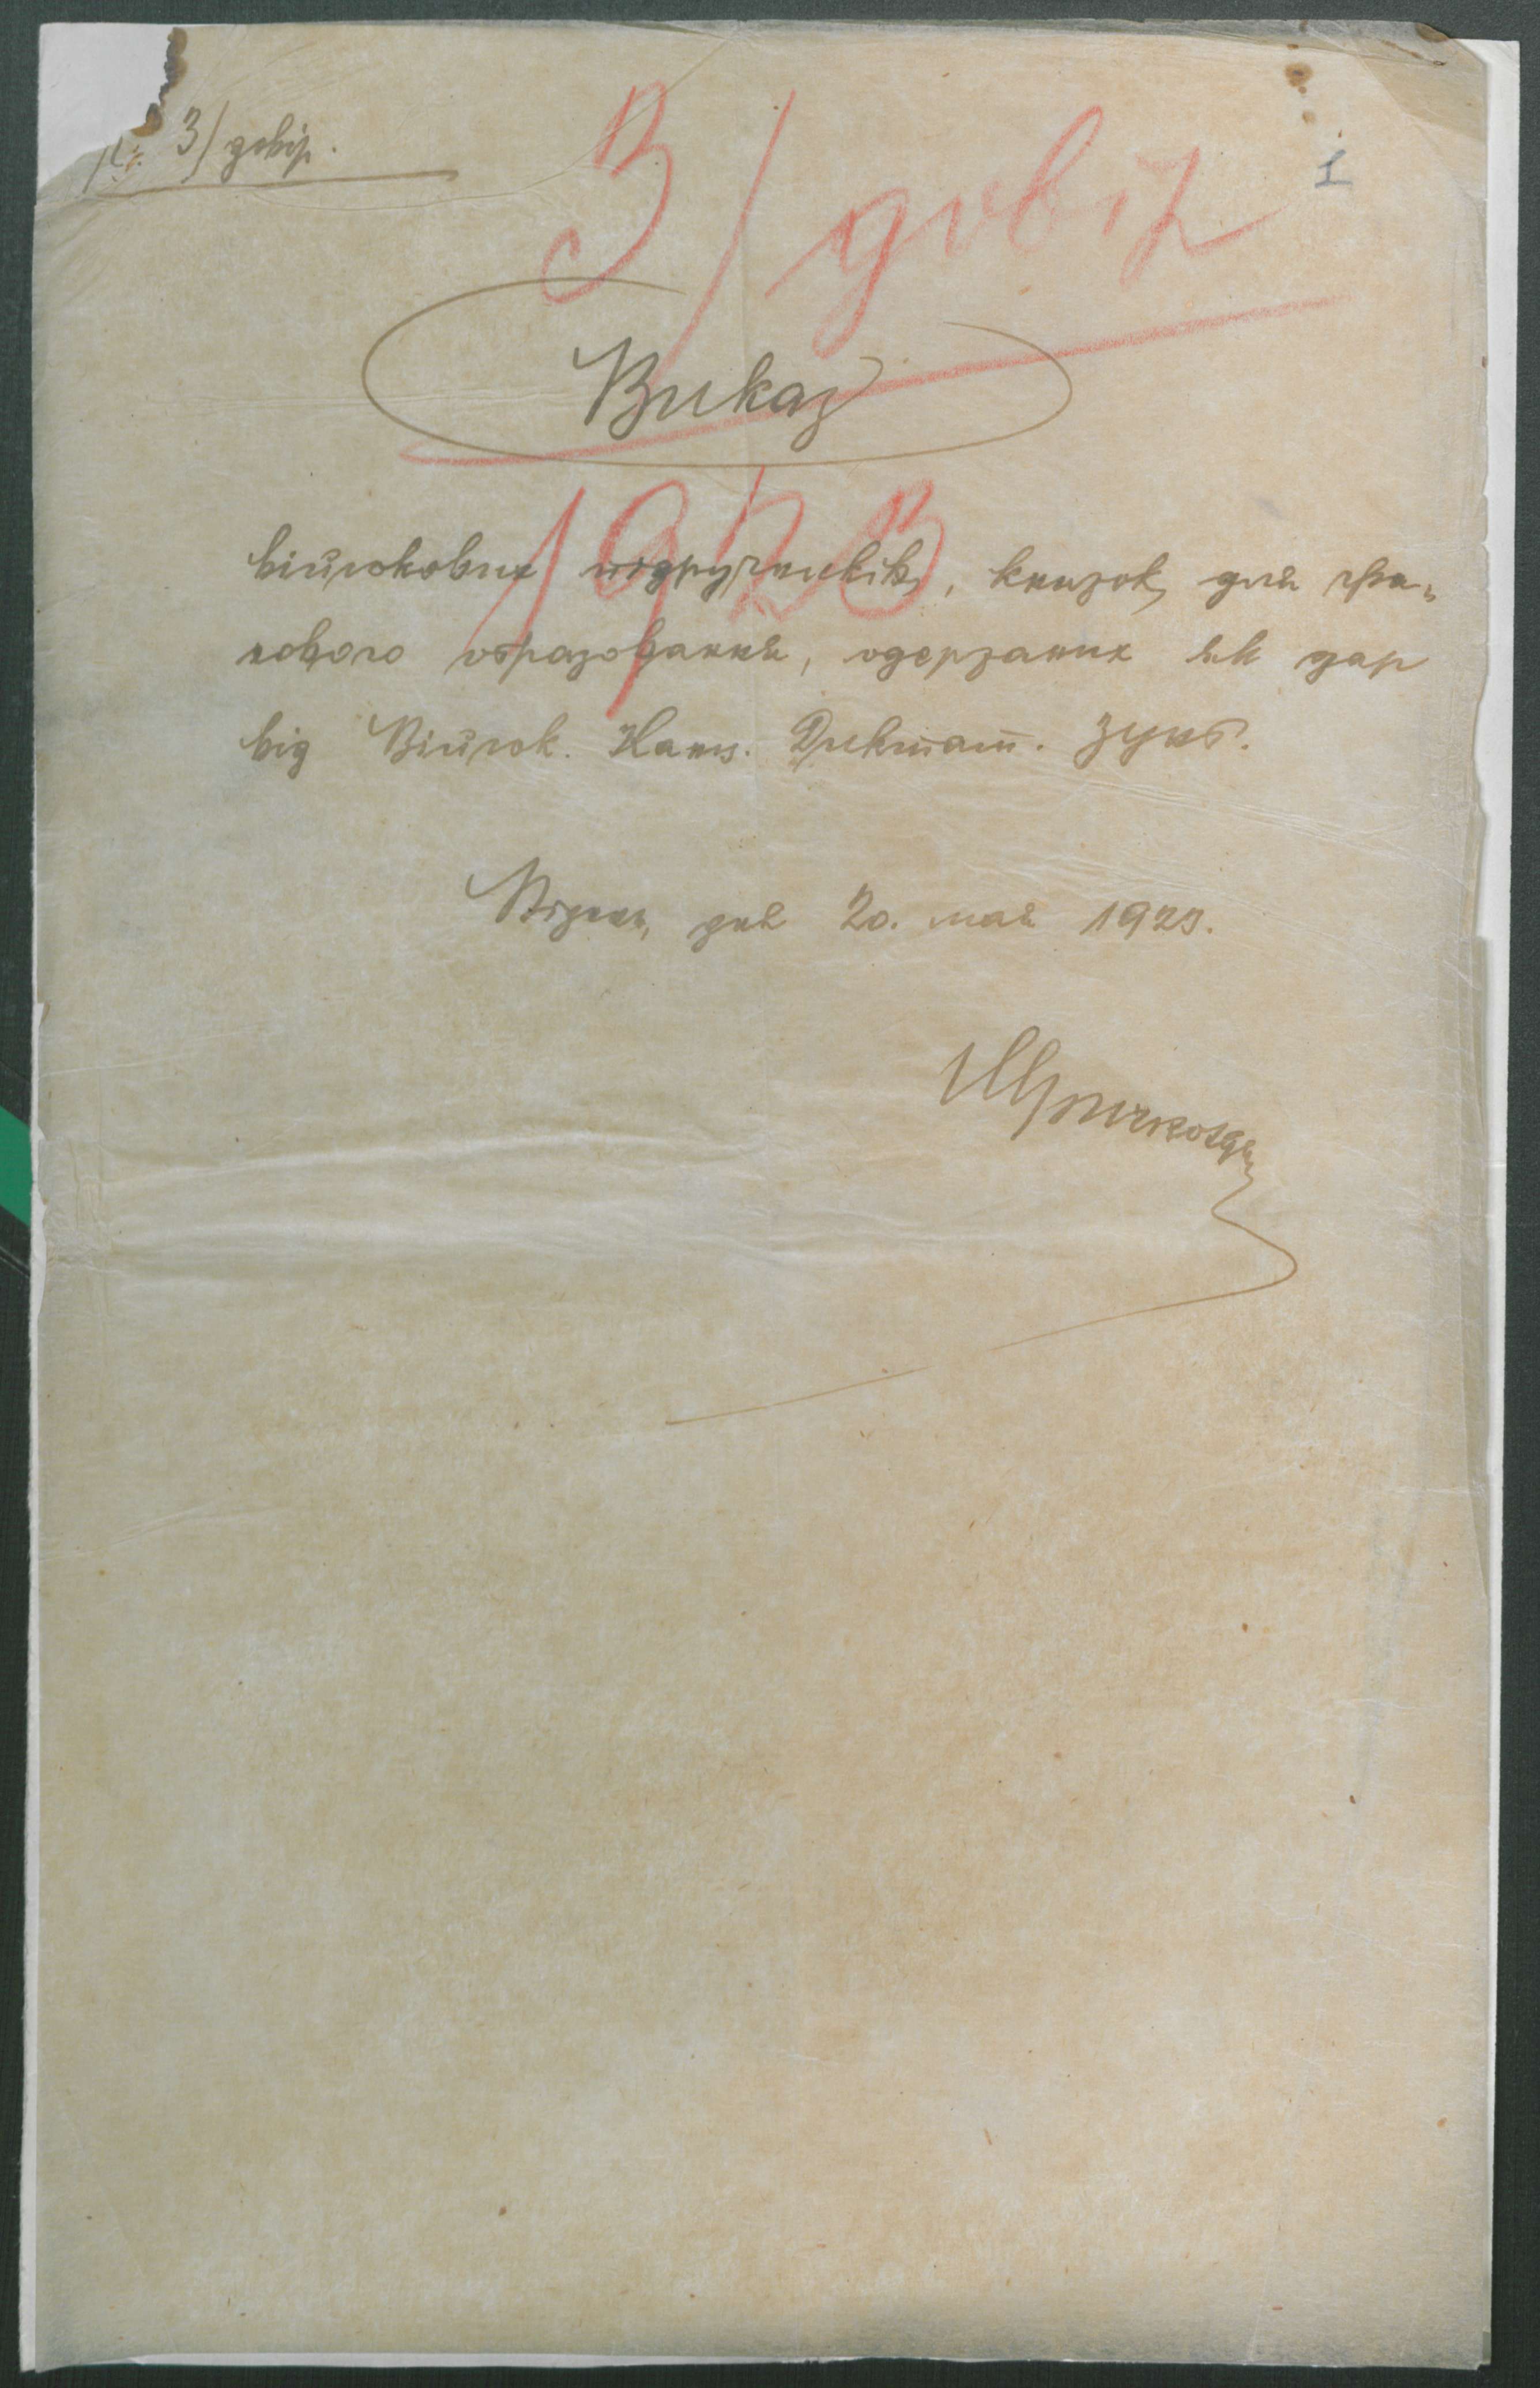 3/довір.
3/довір
1
Виказ
1923
військових підручників, книжок для фа-
хового образовання, одержаних як дар
від Військ. Канц. Диктат. ЗУНР.
Відень, дня 20. мая 1923.